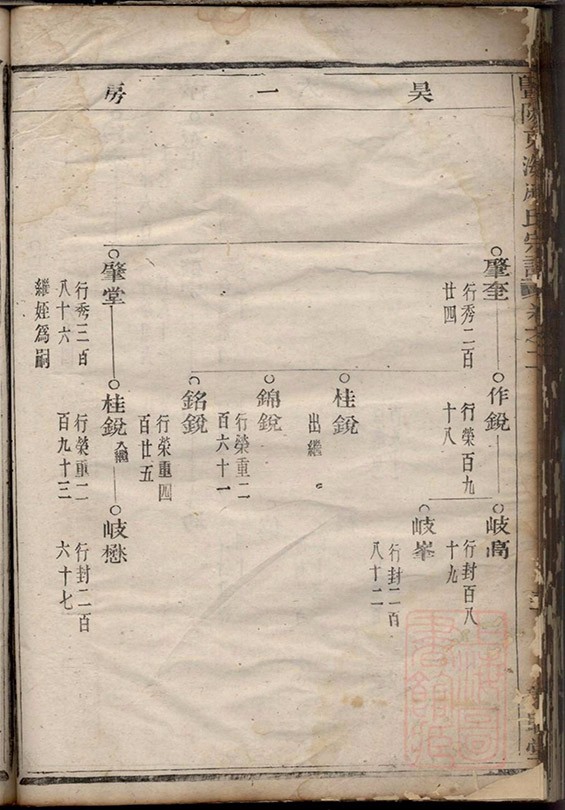 昊一房
肇奎
行秀二百
廿四
作銳
行榮百九
十八
岐高
行封百八
十九
岐峯
行封二百
八十二
桂銳
出繼
錦銳
行榮重二
百六十一
銘銳
行榮重四
百廿五
肇堂
行秀三百
八十六
繼姪爲嗣
桂銳入繼
行榮重二
百九十三
岐懋
行封二百
六十七